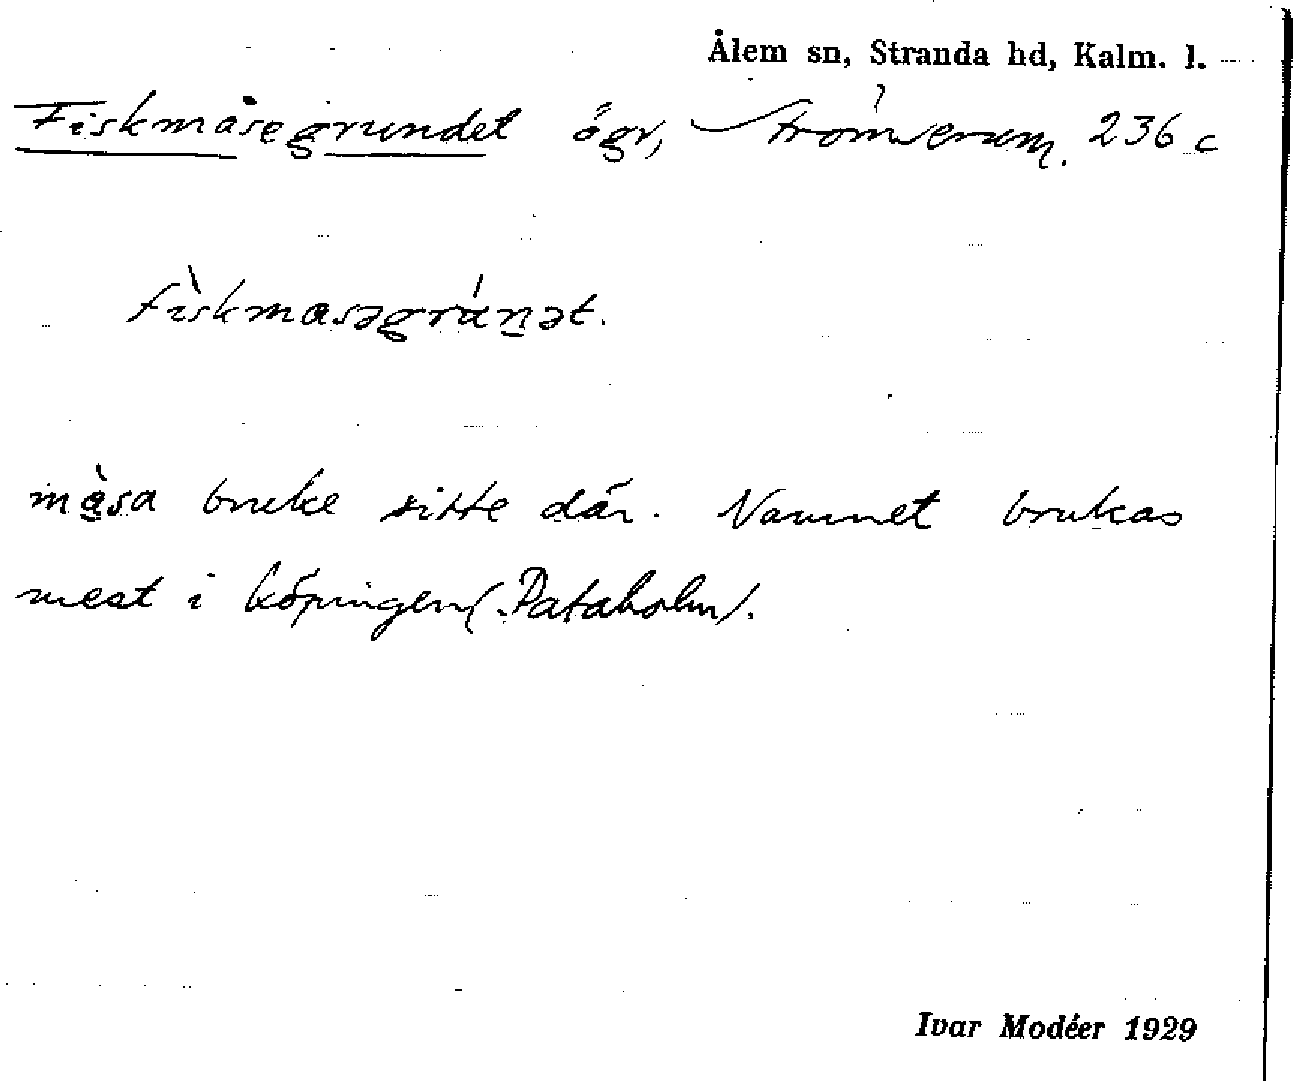 Ålem sn, Stranda hd, Kalm. l.
Fiskmåsegrundet ögr, Strömserum. 236 c
fìskmasəgrúnət.
måsa bruke sitte där. Namnet brukas
mest i köpingen (Pataholm).
Ivar Modéer 1929